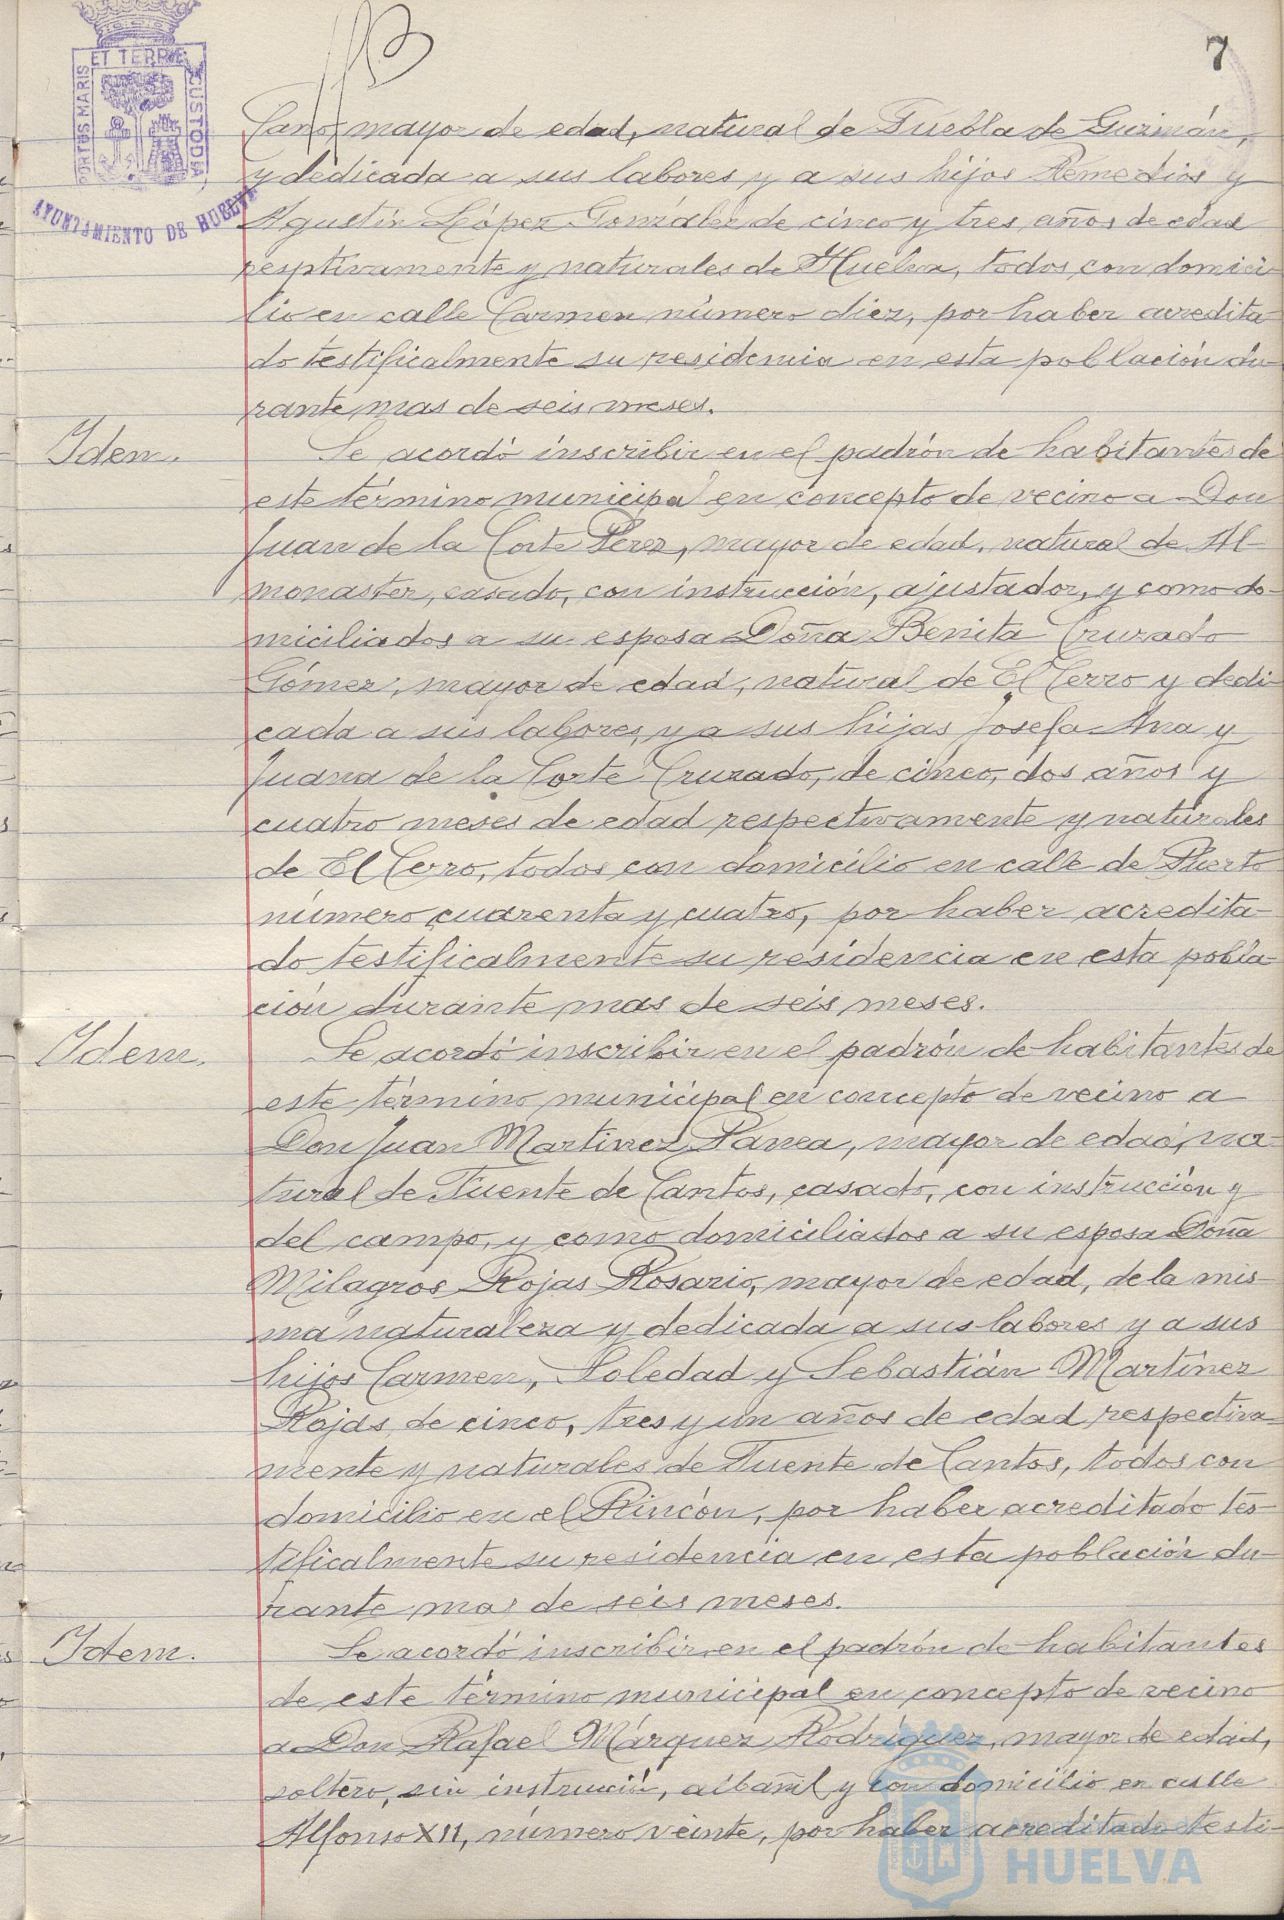 7
PORTUS MARIS ET TERRÆ CUSTODIA
AYUNTAMIENTO DE HUELVA
Cano, mayor de edad, natural de Puebla de Guzmán,
y dedicada a sus labores y a sus hijos Remedios y
Agustín López González de cinco y tres años de edad
resptivamente y naturales de Huelva, todos con domici-
lio en calle Carmen número diez, por haber acredita-
do testificalmente su residencia en esta población du-
rante mas de seis meses.
Idem. Se acordó inscribir en el padrón de habitantes de
este término municipal en concepto de vecino a Don
Juan de la Corte Perez, mayor de edad, natural de Al-
monaster, casado, con instrucción, ajustador, y como do-
miciliados a su esposa Doña Benita Cruzado
Gómez, mayor de edad, natural de El Cerro y dedi-
cada a sus labores, y a sus hijas Josefa Ana y
Juana de la Corte Cruzado, de cinco, dos años y
cuatro meses de edad respectivamente y naturales
de El Cerro, todos con domicilio en calle de Puerto
número cuarenta y cuatro, por haber acredita-
do testificalmente su residencia en esta pobla-
ción durante mas de seis meses.
Idem. Se acordó inscribir en el padrón de habitantes de
este término municipal en concepto de vecino a
Don Juan Martinez Panea, mayor de edad, na-
tural de Fuente de Cantos, casado, con instrucción y
del campo, y como domiciliados a su esposa Doña
Milagros Rojas Rosario, mayor de edad, de la mis-
ma naturaleza y dedicada a sus labores y a sus
hijos Carmen, Soledad y Sebastián Martínez
Rojas, de cinco, tres y un años de edad respectiva-
mente y naturales de Fuente de Cantos, todos con
domicilio en el Rincón, por haber acreditado tes-
tificalmente su residencia en esta población du-
rante mas de seis meses.
Idem. Se acordó inscribir en el padrón de habitantes
de este término municipal en concepto de vecino
a Don Rafael Márquez Rodríguez, mayor de edad,
soltero, sin instrucción, albañil y con domicilio en calle
Alfonso XII, número veinte, por haber acreditado testi-
HUELVA